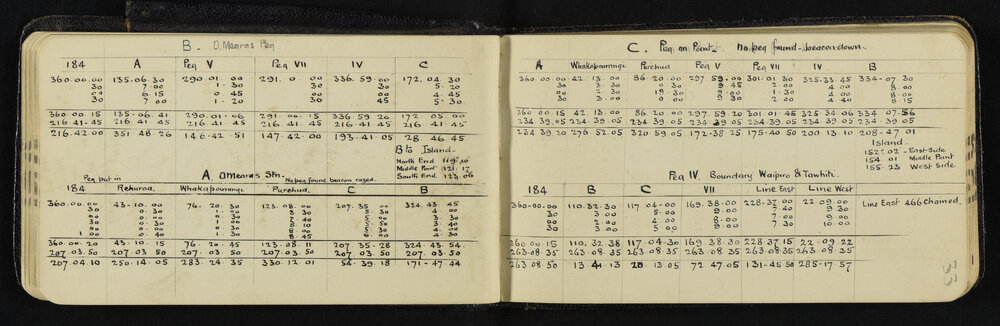 B. O.Mearas Peg
184 A Peg V Peg VII IV C
360.00.00 135.06.30 290.01.00 291.0.00 336.59.00 172.04.30
30 7.00 1.30 30 30 5.20
00 6.15 0.45 00 00 4.45
30 7.00 1.20 30 45 5.30
360.00.15 135.06.41 290.01.06 291.00.15 336.59.26 172.05.00
216.41.45 216.41.45 216.41.45 216.41.45 216.41.45 216.41.45
216.42.00 351.48.26 146.42.51 147.42.00 193.41.05 28 46 45
B to Island
North End 119°10'
Middle Point 121.17
South End 123.06
Peg put in A Omearas Stn. No peg found beacon razed.
184 Rehuroa. Whakapourangi Purehua. C B
360.00.00 43.10.00 76.20.30 123.08.00 207.35.00 324.43.45
360.00.20 43.10.15 76.20.45 123.08.11 207.35.28 324.43.54
207.03.50 207.03.50 207.03.50 207.03.50 207.03.50 207.03.50
207.04.10 250.14.05 283.24.35 330.12.01 54.39.18 171.47.44
C. Peg on Point. No peg found - beacon down.
A Whakapourangi Purehua Peg V Peg VII IV B
360.00.00 42.13.00 86.20.00 297.59.00 301.01.30 325.33.45 334.07.30
30 2.30 30 9.45 2.00 4.00 8.00
00 3.30 19.30 0.00 1.30 4.00 8.00
30 3.00 0 9.30 2.00 4.40 8.15
360.00.15 42.13.00 86.20.00 297.59.20 301.01.45 325.34.06 334.07.56
234.39.05 234.39.05 234.39.05 234.39.05 234.39.05 234.39.05 234.39.05
234.39.20 276.52.05 320.59.05 172.38.25 175.40.50 200.13.10 208.47.01
Island.
152°.02 - East Side
154.01 Middle Point
155.23 West Side
Peg IV. Boundary Waipiro & Tawhiti.
184 B C VII Line East Line West
360.00.00 110.32.30 117.04.00 169.38.00 228.37.00 22 09.00 Line East 466 Chained.
30 3.00 5.00 9.00 7.40 9.30
00 2.00 4.00 8.00 7.00 9.00
30 3.00 5.00 9.00 7.30 10.00
360.00.15 110.32.38 117.04.30 169.38.30 228.37.15 22.09.22
263.08.35 263.08.35 263.08.35 263.08.35 263.08.35 263.08.35
263.08.50 13.41.13 20.13.05 72.47.05 131.45.50 285.17.57
33